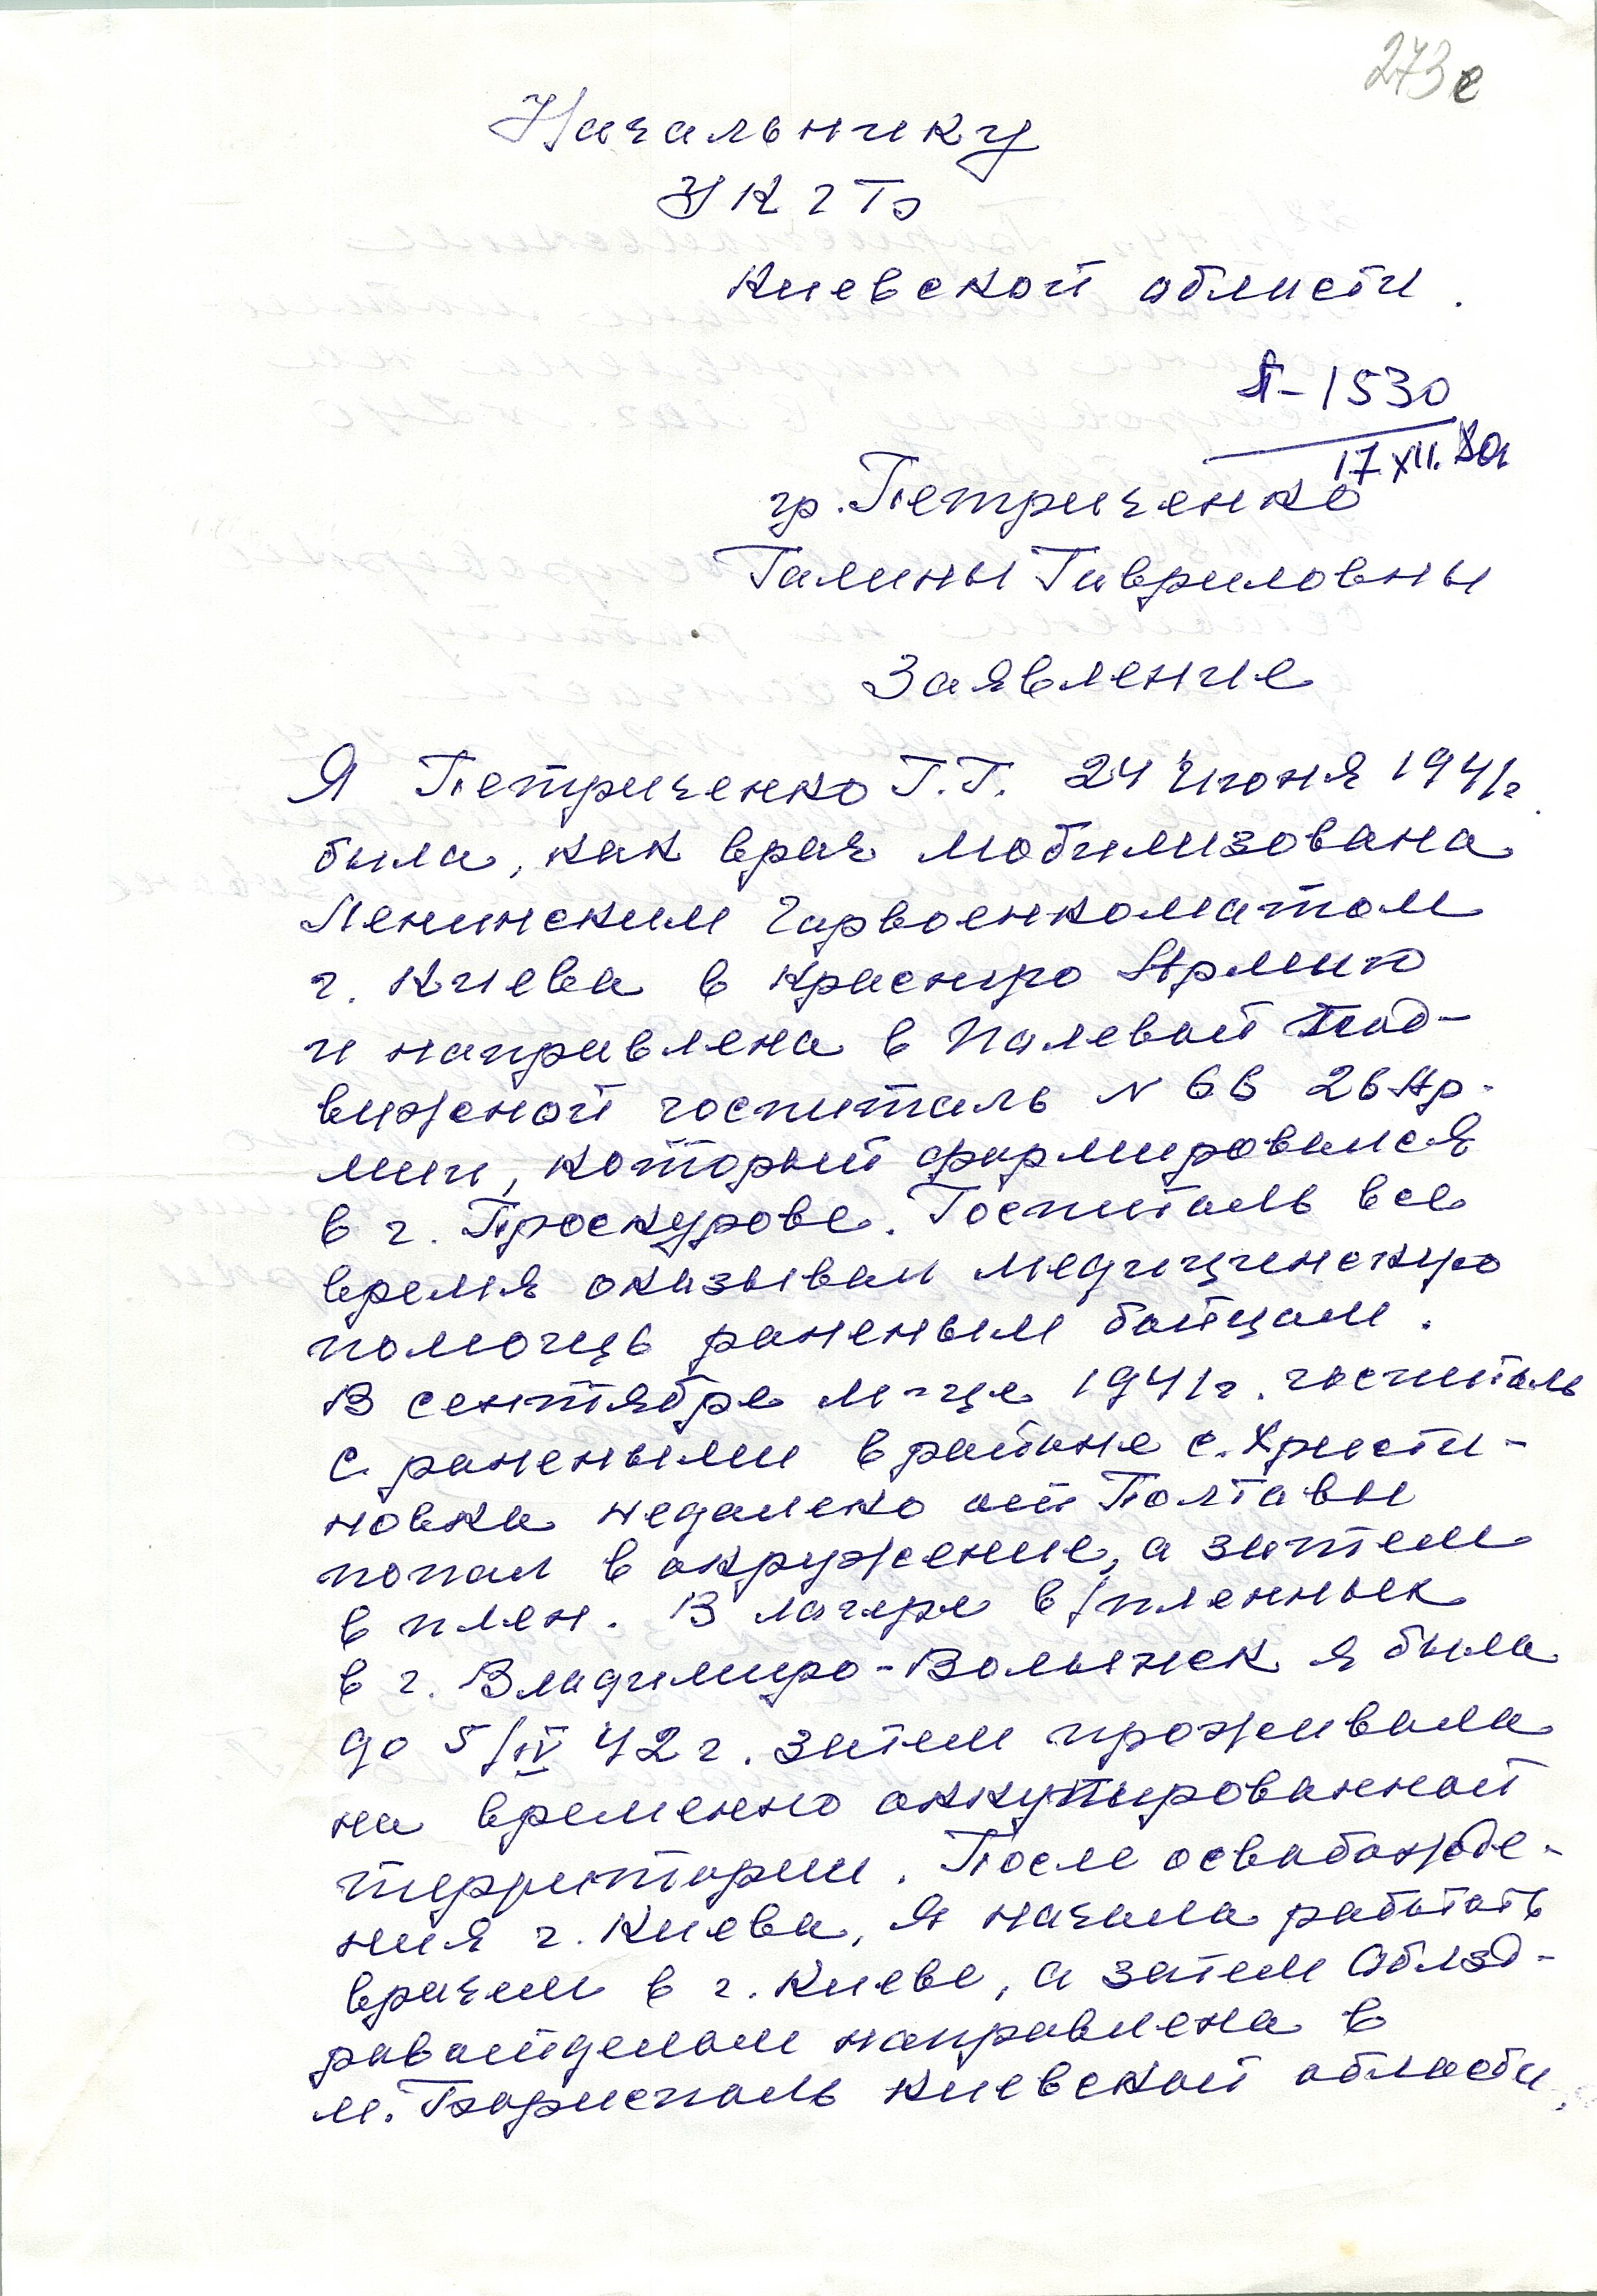 273е
Начальнику
УКГБ
Киевской области.
П-1530
17 XII.
гр. Петриченко
Галины Гавриловны
Заявление
Я Петриченко Г.Г. 24 Июня 1941г.
была, как врач мобилизована
Ленинским Гарвоенкоматом
г. Киева в Красную Армию
и направлена в Полевой Под-
вижной госпиталь N 66 26 Ар-
мии, который формировался
в г. Проскурове. Госпиталь все
время оказывал медицинскую
помощь раненым бойцам.
В сентябре м-це 1941г. госпиталь
с ранеными в районе с. Христи-
новка недалеко от Полтавы
попал в окружение, а затем
в плен. В лагере в/пленных
в г. Владимиро-Волынск я была
до 5/IV 42 г. Затем проживала
на временно оккупированной
территории. После освобожде-
ния г. Киева, я начала работать
врачем в г. Киеве, а затем Облзд-
равотделом направлена в
м. Борисполь Киевской области.